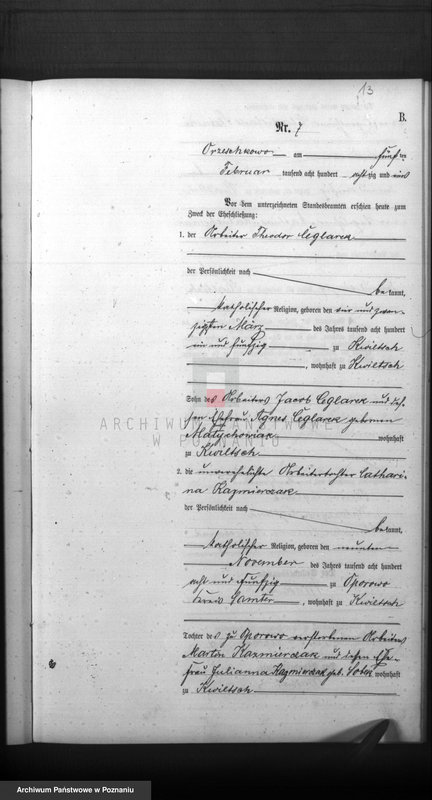 13
B.
Nr. 7
Orzeschkowo am fünften
Februar tausend acht hundert achtzig und eins
Vor dem unterzeichneten Standesbeamten erschien heute zum
Zweck der Eheschließung:
1. der Arbeiter Theodor Ceglarek
der Persönlichkeit nach
bekannt,
katholischer Religion, geboren den vier und zwan-
zigsten März des Jahres tausend acht hundert
ein und fünfzig zu Kwiltsch
, wohnhaft zu Kwiltsch
Sohn des Arbeiters Jacob Ceglarek und des-
sen Ehefrau Agnes Ceglarek geborenen
ARCHIWUM PAŃSTWOWE
W POZNANIU
wohnhaft
zu Kwiltsch
2. die unverehelichte Arbeitertochter Cathari-
na Kazmierczak
der Persönlichkeit nach
bekannt,
katholischer Religion, geboren den neunten
November des Jahres tausend acht hundert
acht und fünfzig zu Oporowo
Kreis Samter, wohnhaft zu Kwiltsch
Tochter des zu Oporowo verstorbenen Arbeiters
Martin Kazmierczak und dessen Ehe-
frau Julianna Kazmierczak geb. wohnhaft
zu Kwiltsch
Archiwum Państwowe w Poznaniu